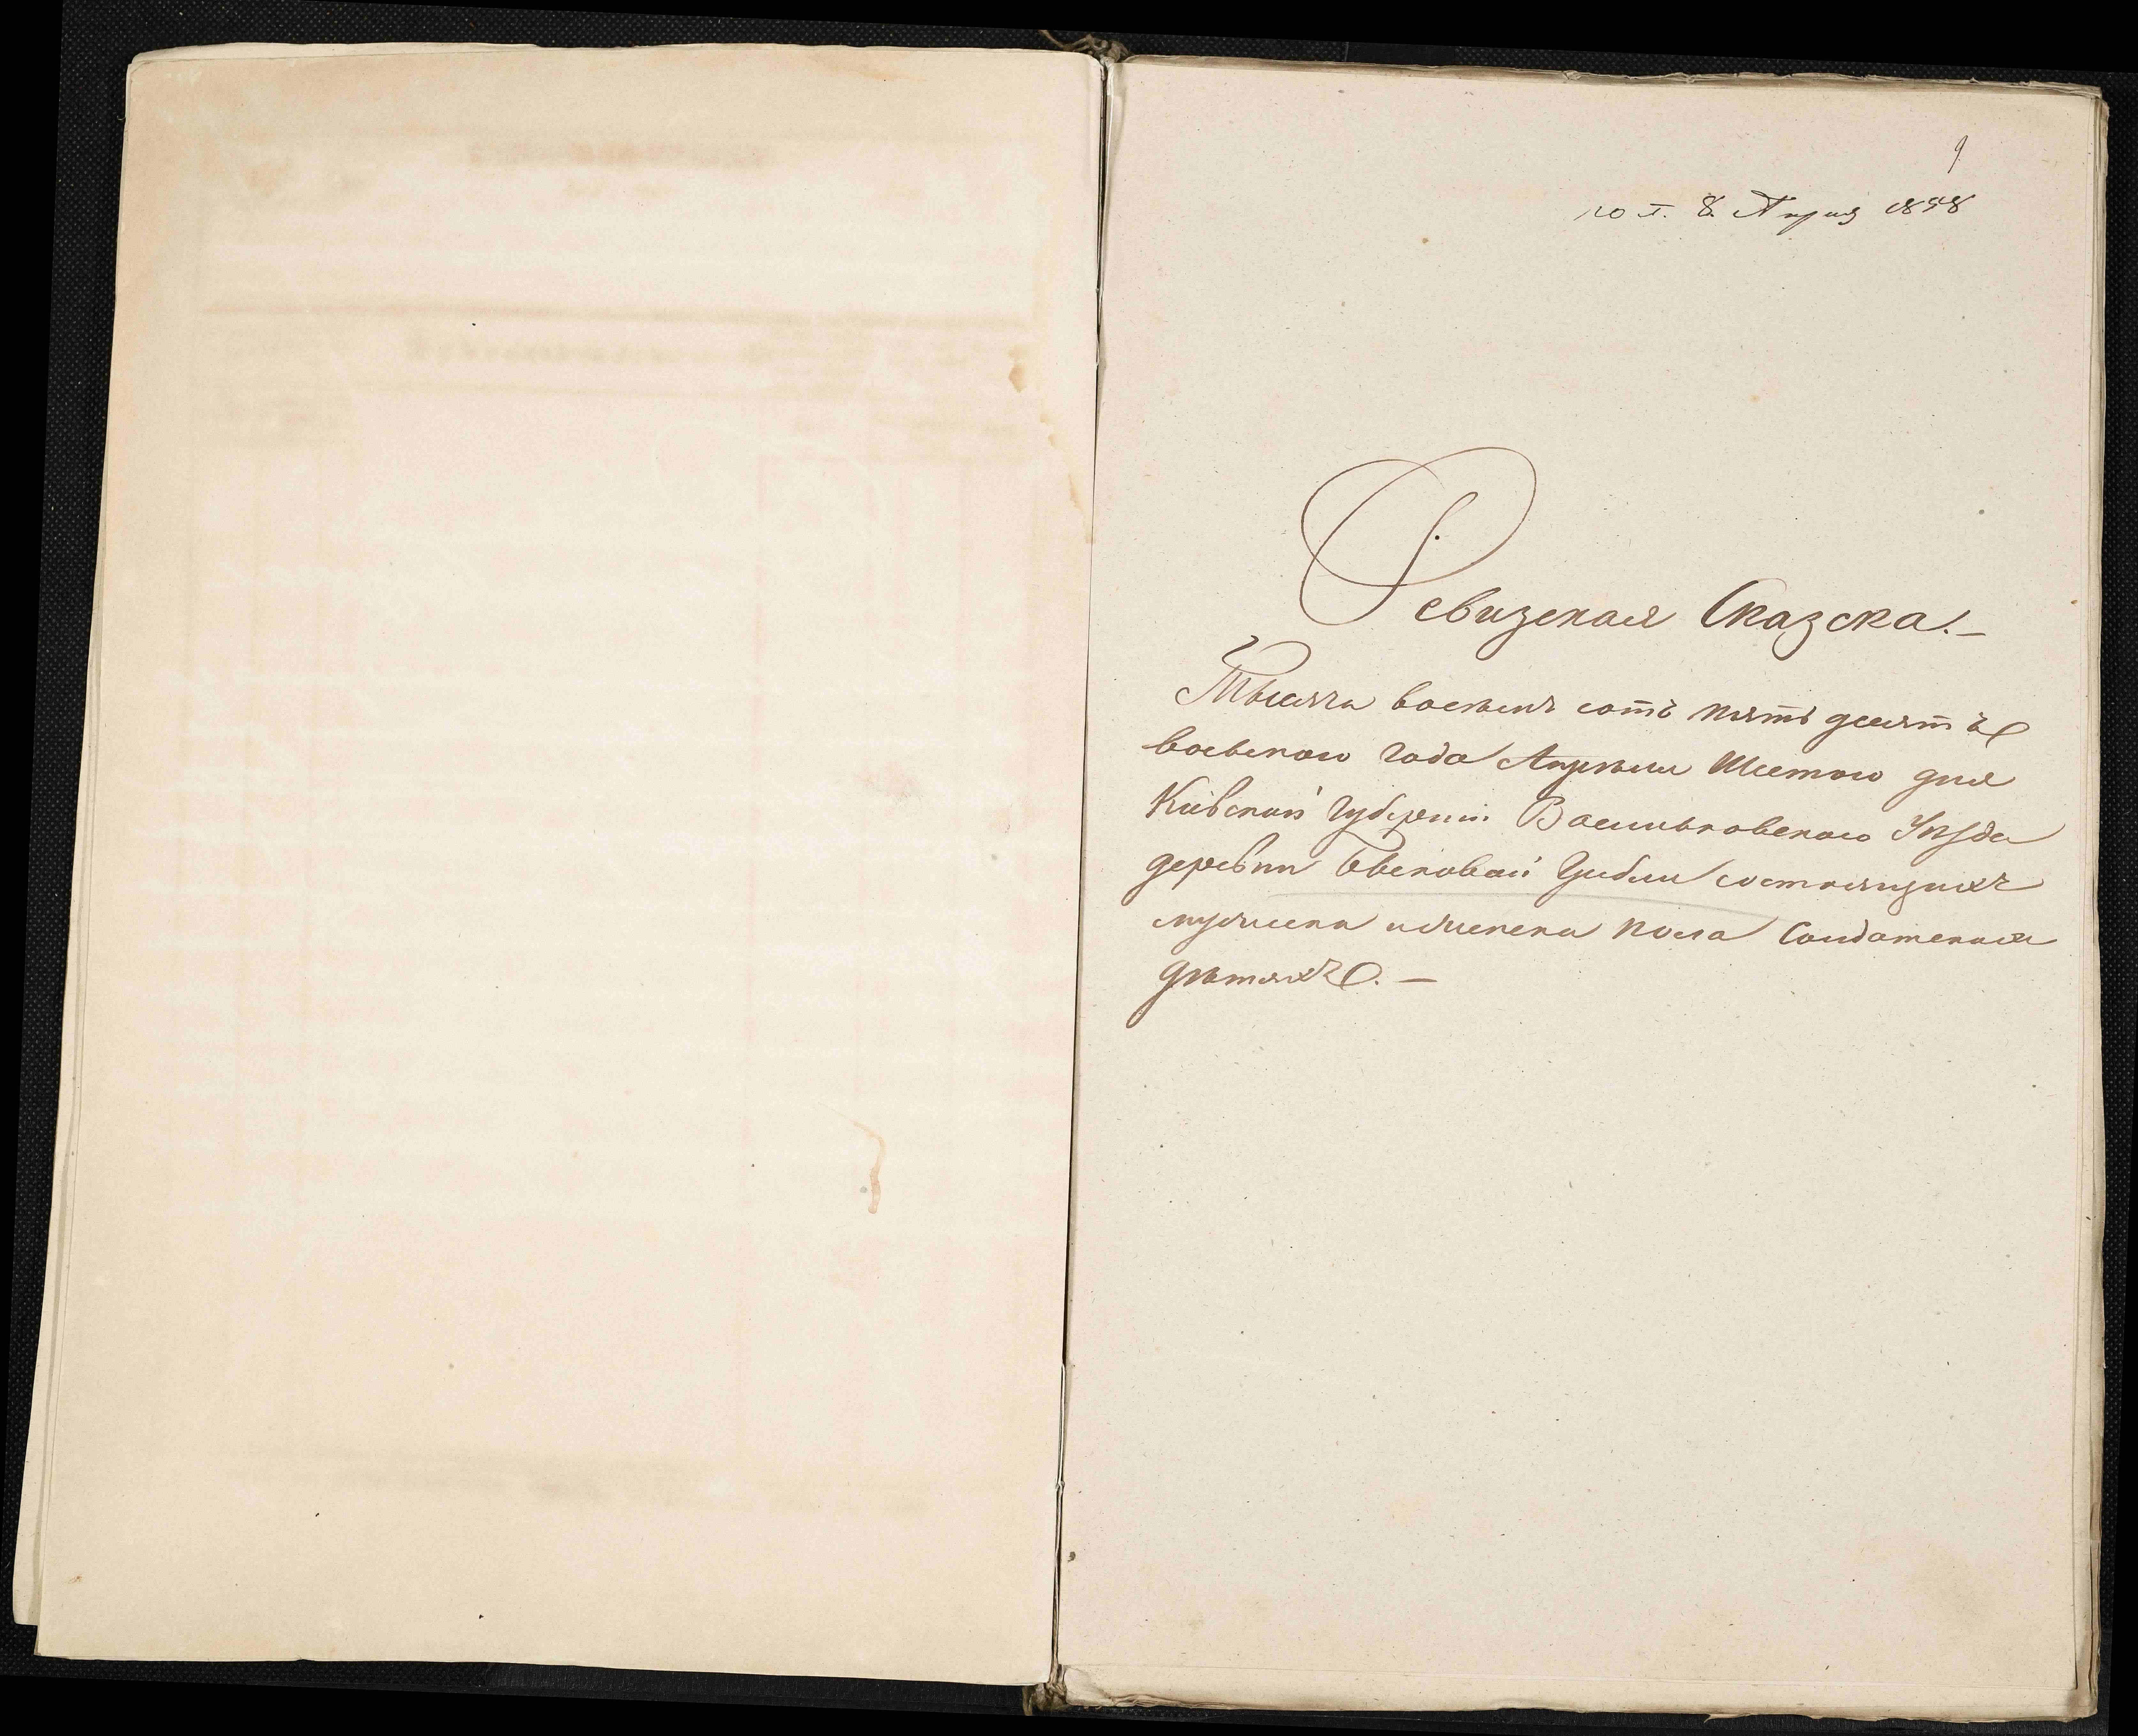 8 Апреля 1858
Ревизская Сказка.
Тысяча восемь сотъ пятьдесятъ
восьмого года Апреля Шестого дня
Кіевской Губерніи Васильковского Уѣзда
деревни Песковой состоящихъ
мужеска и женска пола Солдатскихъ
дѣтяхъ. —